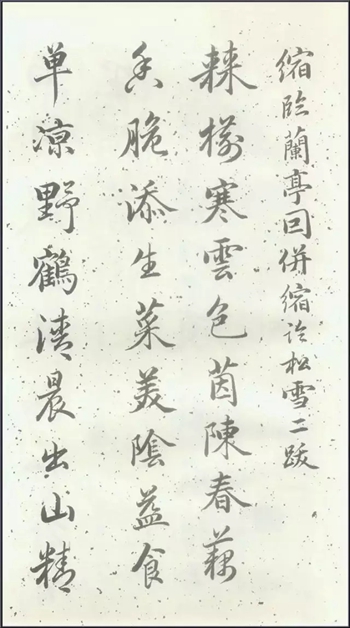 缩临蘭亭回併缩临松雪二跋
棘樹寒雲色茵陳春藕
香脆添生菜美陰益食
单凉野鶴清晨出山精